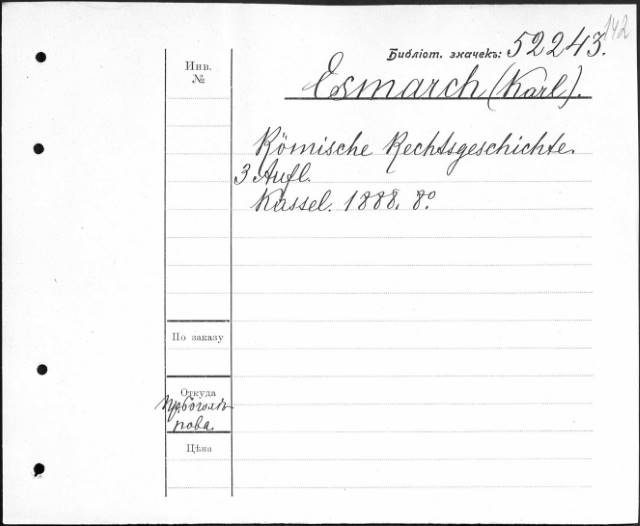 142
Библіот. значекъ: 52243.
Инв.
№
Esmarch (Karl).
Römische Rechtsgeschichte.
3 Aufl.
Kassel. 1888. 8º
По заказу
Откуда
Пр. Боголѣ-
пова.
Цѣна